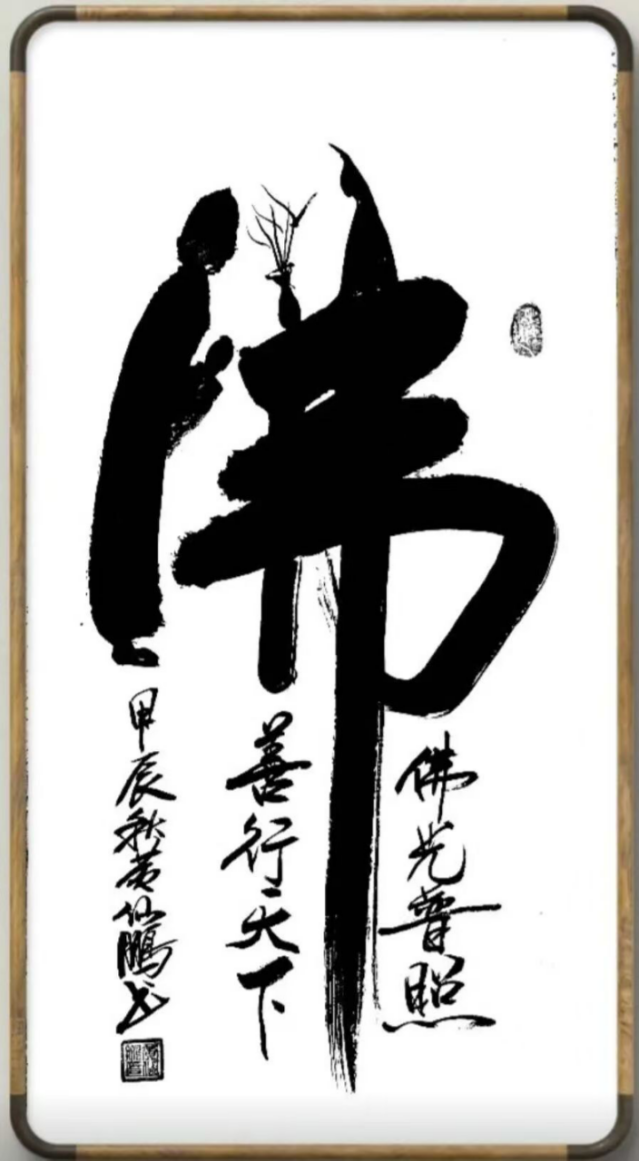 佛
佛光普照
善行天下
甲辰秋黄仙鹏书